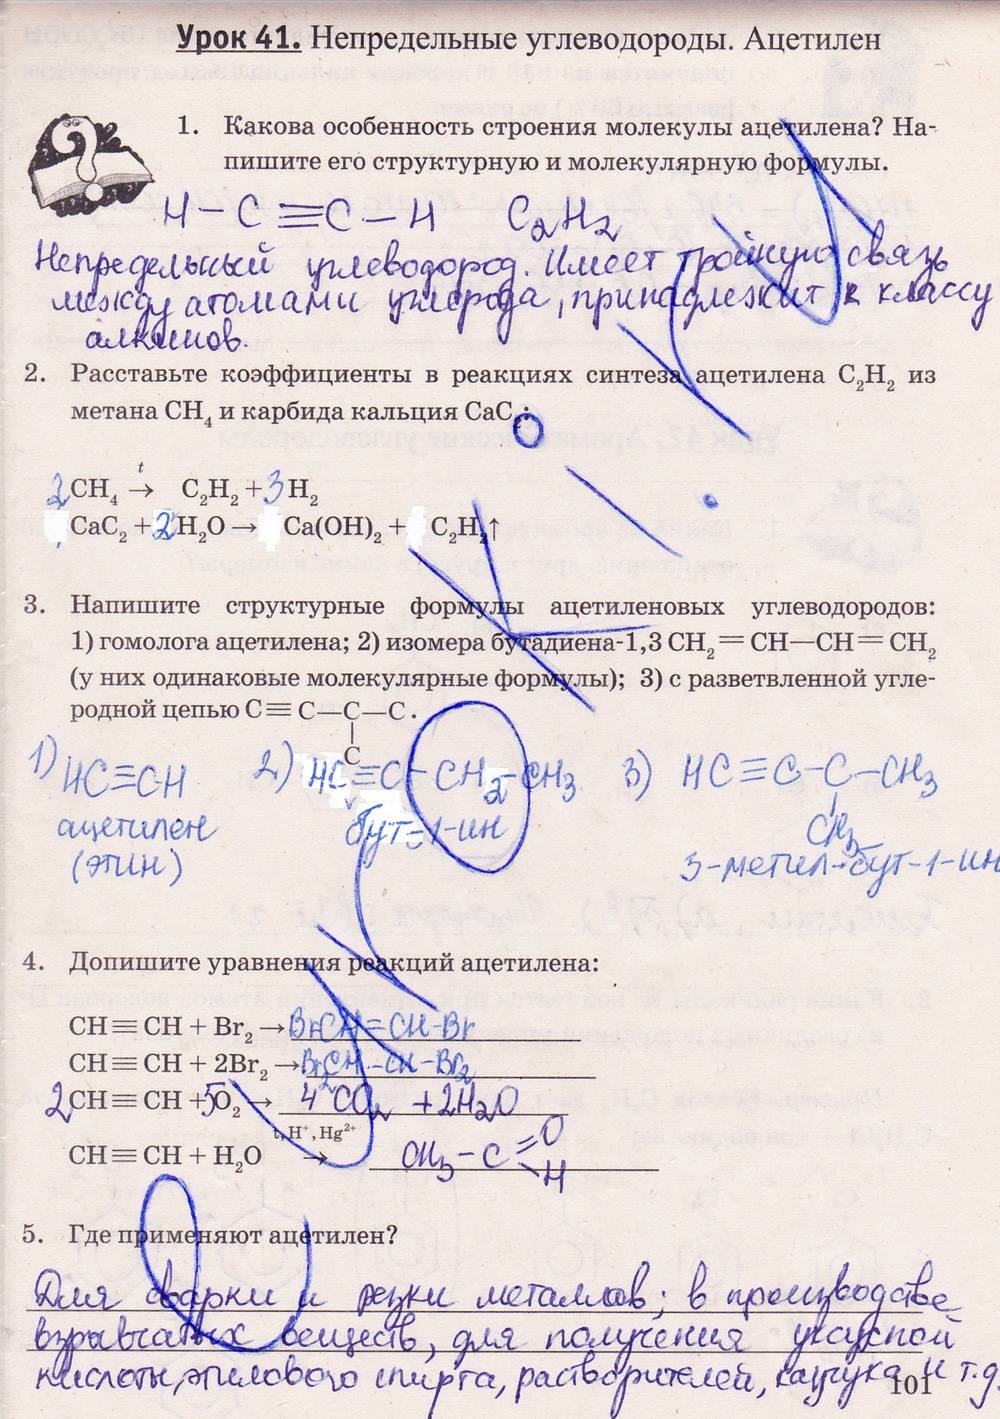 Урок 41. Непредельные углеводороды. Ацетилен
1. Какова особенность строения молекулы ацетилена? На-
пишите его структурную и молекулярную формулы.
H – C ≡ C – H C₂H₂
Непредельный углеводород. Имеет тройную связь
между атомами углерода, принадлежит к классу
алкинов.
2. Расставьте коэффициенты в реакциях синтеза ацетилена C₂H₂ из
метана CH₄ и карбида кальция CaC₂:
t
2CH₄ → C₂H₂ + 3H₂
CaC₂ + 2H₂O → Ca(OH)₂ + C₂H₂↑
3. Напишите структурные формулы ацетиленовых углеводородов:
1) гомолога ацетилена; 2) изомера бутадиена-1,3 CH₂=CH—CH=CH₂
(у них одинаковые молекулярные формулы); 3) с разветвленной угле-
родной цепью C≡C—C—C.
|
C
1) HC≡CH 2) HC≡C–CH₂–CH₃ 3) HC≡C–C–CH₃
ацетилен бут-1-ин CH₃
(этин) 3-метил-бут-1-ин
4. Допишите уравнения реакций ацетилена:
CH≡CH + Br₂ → BrCH=CH–Br
CH≡CH + 2Br₂ → Br₂CH–CH–Br₂
2CH≡CH + 5O₂ → 4CO₂ + 2H₂O
t, H⁺, Hg²⁺
CH≡CH + H₂O → CH₃–C=O
H
5. Где применяют ацетилен?
Для сварки и резки металлов; в производстве
взрывчатых веществ, для получения уксусной
кислоты, этилового спирта, растворителей, каучука и т.д.
101